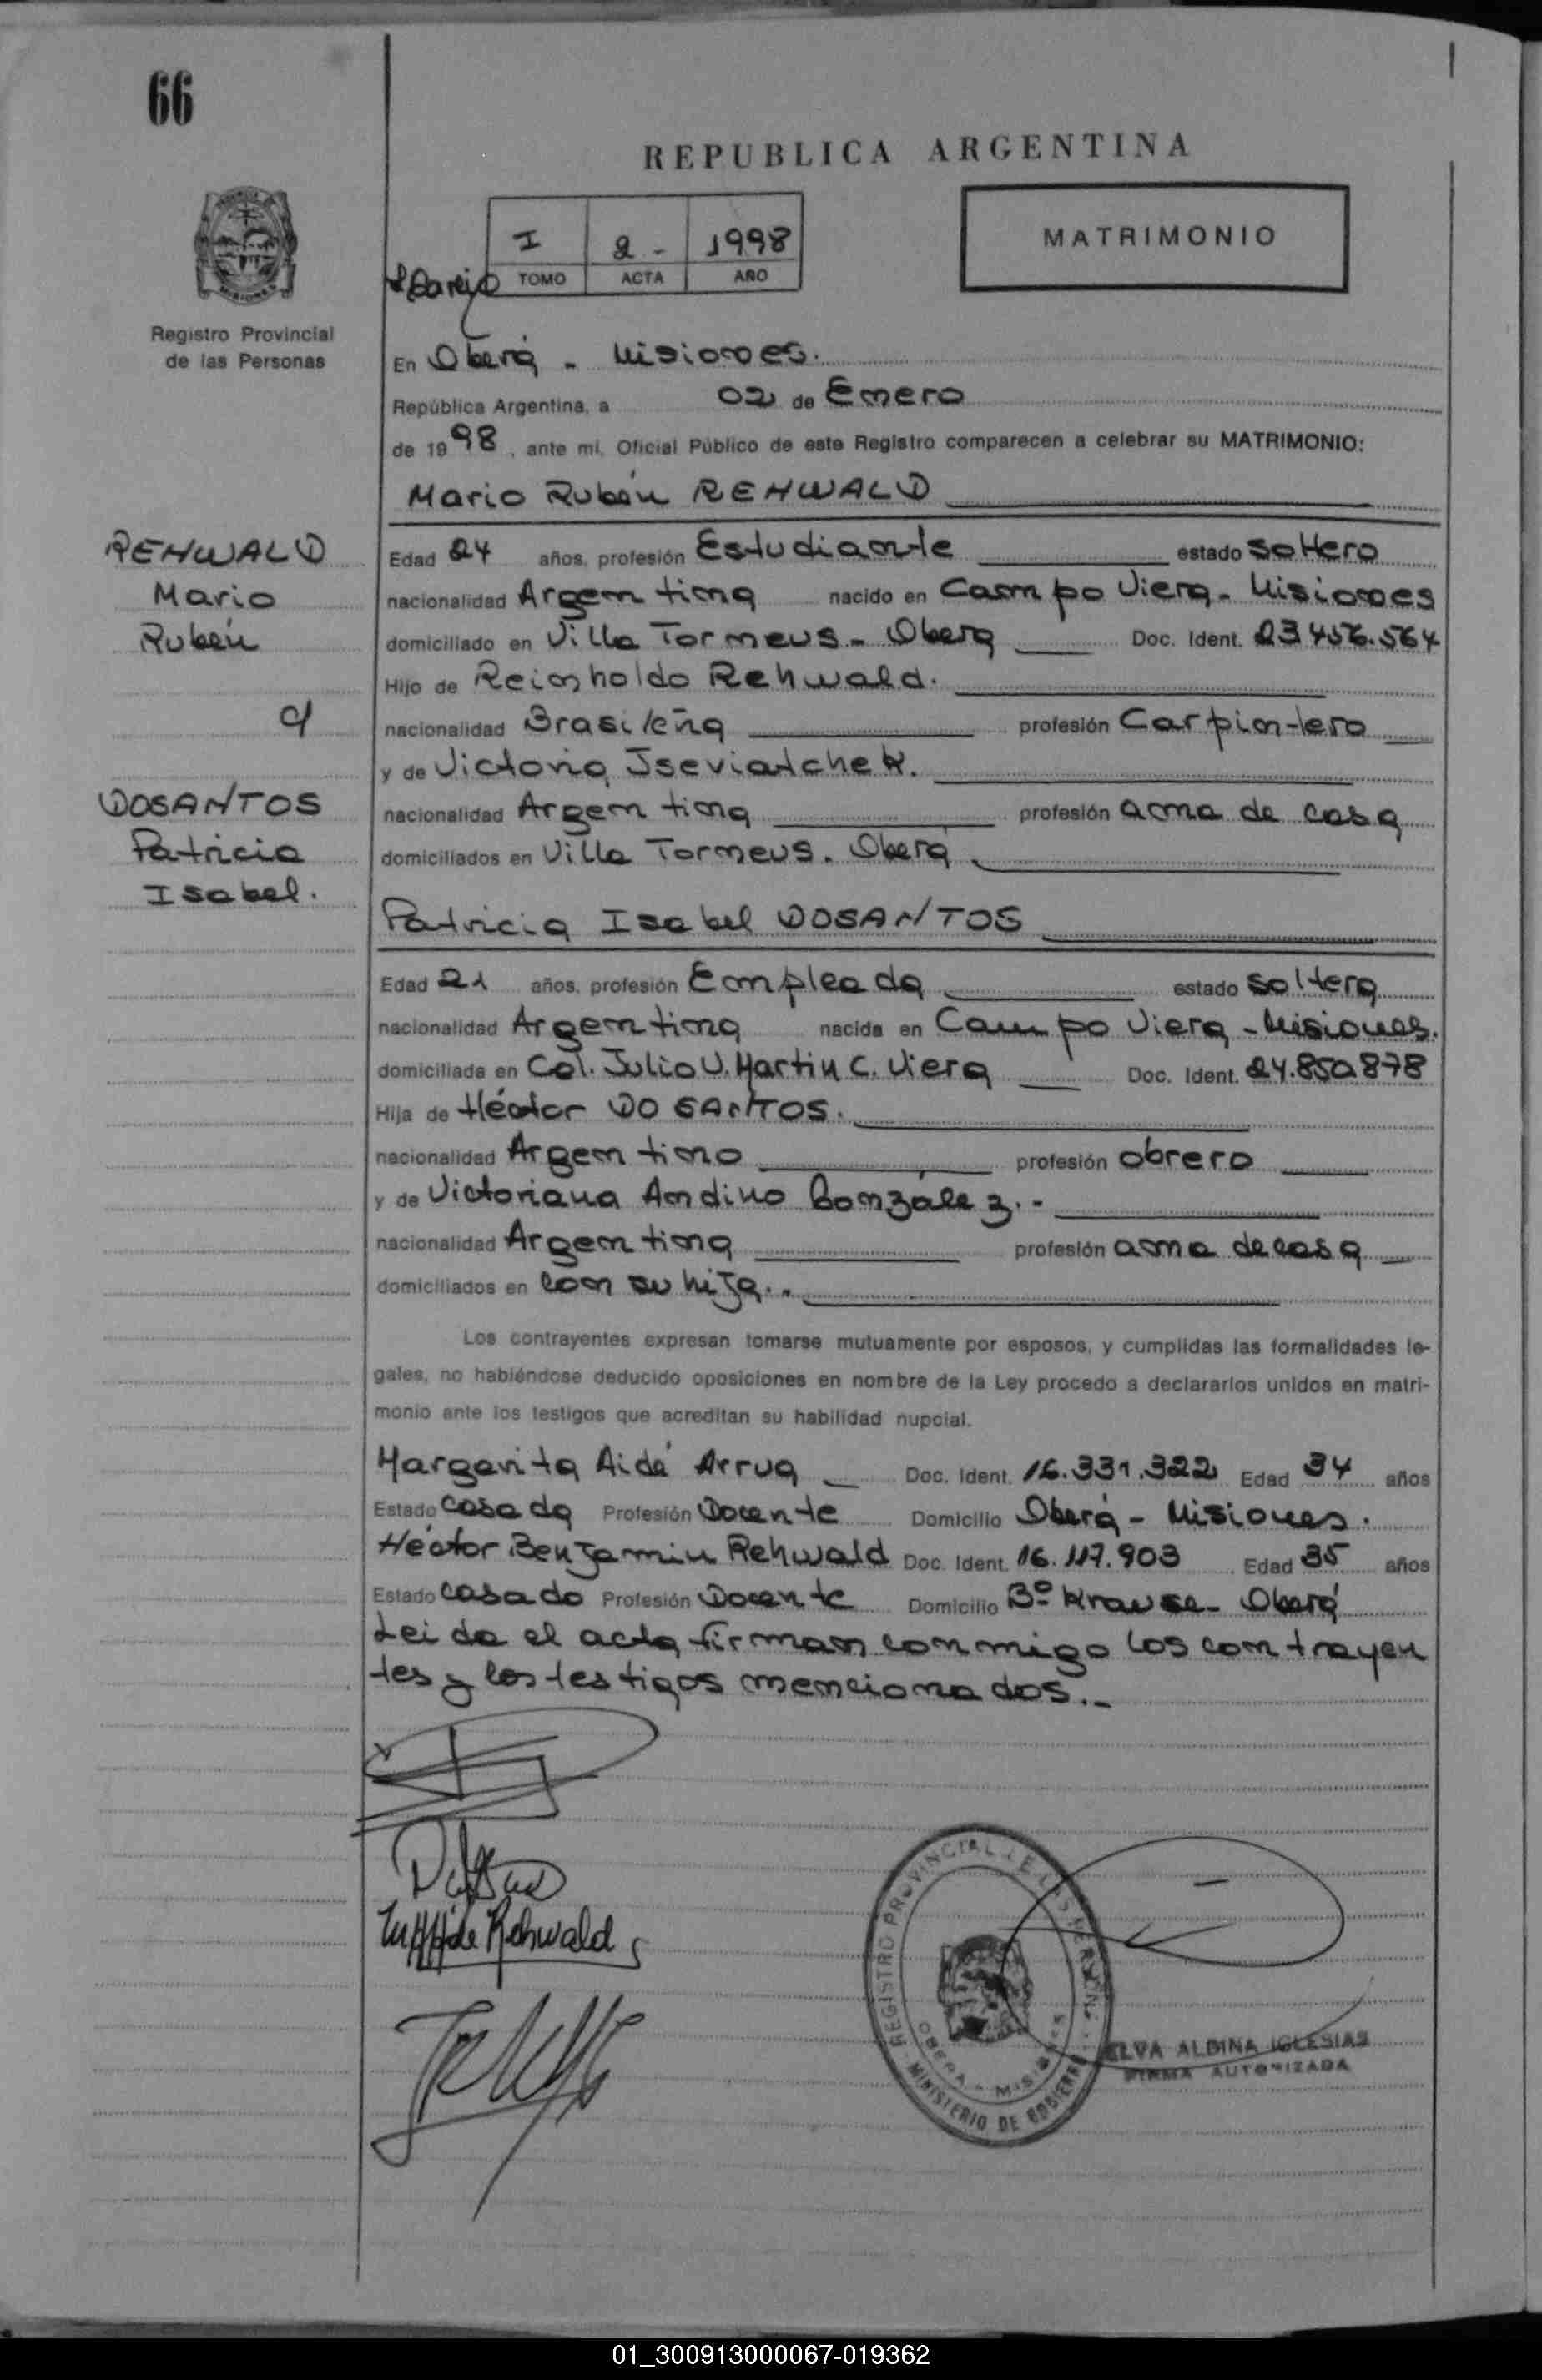 66
REPUBLICA ARGENTINA
I 2- 1998
TOMO ACTA AÑO
MATRIMONIO
MISIONES
Registro Provincial
de las Personas
En Oberá - Misiones.
República Argentina, a 02 de Enero
de 1998, ante mi, Oficial Público de este Registro comparecen a celebrar su MATRIMONIO:
Mario Rubén REHWALD
REHWALD
Mario
Rubén
c/
DOSANTOS
Patricia
Isabel.
Edad 24 años, profesión Estudiante estado Soltero
nacionalidad Argentina nacido en Campo Viera - Misiones
domiciliado en Villa Torneus - Oberá Doc. Ident. 23.456.564
Hijo de Reinholdo Rehwald.
nacionalidad Brasileña profesión Carpintero
y de Victoria Iseviatchek.
nacionalidad Argentina profesión ama de casa
domiciliados en Villa Torneus. Oberá
Patricia Isabel DOSANTOS
Edad 21 años, profesión Empleada estado soltera
nacionalidad Argentina nacida en Campo Viera - Misiones.
domiciliada en Col. Julio U. Martin C. Viera Doc. Ident. 24.850.878
Hija de Héctor DO SANTOS.
nacionalidad Argentino profesión obrero
y de Victoriana Andino González.-
nacionalidad Argentina profesión ama de casa
domiciliados en con su hija..
Los contrayentes expresan tomarse mutuamente por esposos, y cumplidas las formalidades le-
gales, no habiéndose deducido oposiciones en nombre de la Ley procedo a declararlos unidos en matri-
monio ante los testigos que acreditan su habilidad nupcial.
Margarita Aidé Arrua Doc. Ident. 16.331.322 Edad 34 años
Estado Casada Profesión Docente Domicilio Oberá - Misiones.
Héctor Benjamin Rehwald Doc. Ident. 16.117.903 Edad 35 años
Estado Casado Profesión Docente Domicilio Bº Krause - Oberá
Leida el acta firman conmigo los contrayen
tes y los testigos mencionados.-
de Rehwald
REGISTRO PROVINCIAL DE LAS PERSONAS
OBERA - MISIONES
MINISTERIO DE GOBIERNO
ELVA ALBINA IGLESIAS
FIRMA AUTORIZADA
01_300913000067-019362